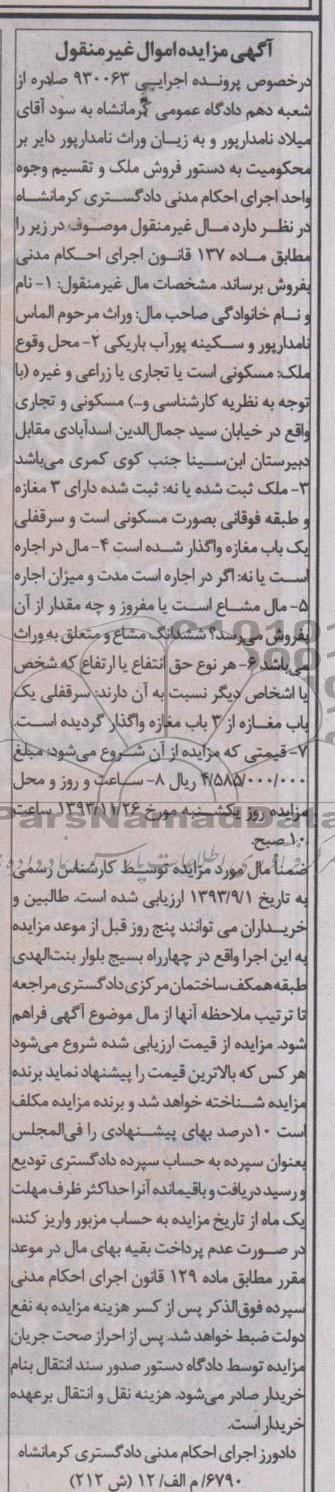 آگهی مزایده اموال غیرمنقول
درخصوص پرونده اجرایی ۹۳۰۰۶۳ صادره از
شعبه دهم دادگاه عمومی کرمانشاه به سود آقای
میلاد نامدارپور و به زیان وراث نامدارپور دایر بر
محکومیت به دستور فروش ملک و تقسیم وجوه
واحد اجرای احکام مدنی دادگستری کرمانشاه
در نظر دارد مال غیرمنقول موصوف در زیر را
مطابق ماده ۱۳۷ قانون اجرای احکام مدنی
بفروش برساند. مشخصات مال غیرمنقول: ۱- نام
و نام خانوادگی صاحب مال: وراث مرحوم الماس
نامدارپور و سکینه پورآب باریکی ۲- محل وقوع
ملک: مسکونی است یا تجاری یا زراعی و غیره (با
توجه به نظریه کارشناسی و...) مسکونی و تجاری
واقع در خیابان سید جمال‌الدین اسدآبادی مقابل
دبیرستان ابن‌سینا جنب کوی کمری می‌باشد
۳- ملک ثبت شده یا نه: ثبت شده دارای ۳ مغازه
و طبقه فوقانی بصورت مسکونی است و سرقفلی
یک باب مغازه واگذار شده است ۴- مال در اجاره
است یا نه: اگر در اجاره است مدت و میزان اجاره
۵- مال مشاع است یا مفروز و چه مقدار از آن
بفروش می‌رسد؟ ششدانگ مشاع و متعلق به وراث
می‌باشد ۶- هر نوع حق انتفاع یا ارتفاع که شخص
یا اشخاص دیگر نسبت به آن دارند: سرقفلی یک
باب مغازه از ۳ باب مغازه واگذار گردیده است.
۷- قیمتی که مزایده از آن شروع می‌شود: مبلغ
۴/۵۸۵/۰۰۰/۰۰۰ ریال ۸- ساعت و روز و محل
مزایده روز یکشنبه مورخ ۱۳۹۳/۱۱/۲۶ ساعت
۱۰ صبح.
ضمناً مال مورد مزایده توسط کارشناس رسمی
به تاریخ ۱۳۹۳/۹/۱ ارزیابی شده است. طالبین و
خریداران می توانند پنج روز قبل از موعد مزایده
به این اجرا واقع در چهارراه بسیج بلوار بنت‌الهدی
طبقه همکف ساختمان مرکزی دادگستری مراجعه
تا ترتیب ملاحظه آنها از مال موضوع آگهی فراهم
شود. مزایده از قیمت ارزیابی شده شروع می‌شود
هر کس که بالاترین قیمت را پیشنهاد نماید برنده
مزایده شناخته خواهد شد و برنده مزایده مکلف
است ۱۰درصد بهای پیشنهادی را فی‌المجلس
بعنوان سپرده به حساب سپرده دادگستری تودیع
و رسید دریافت و باقیمانده آنرا حداکثر ظرف مهلت
یک ماه از تاریخ مزایده به حساب مزبور واریز کند،
در صورت عدم پرداخت بقیه بهای مال در موعد
مقرر مطابق ماده ۱۲۹ قانون اجرای احکام مدنی
سپرده فوق‌الذکر پس از کسر هزینه مزایده به نفع
دولت ضبط خواهد شد. پس از احراز صحت جریان
مزایده توسط دادگاه دستور صدور سند انتقال بنام
خریدار صادر می‌شود. هزینه نقل و انتقال برعهده
خریدار است.
دادورز اجرای احکام مدنی دادگستری کرمانشاه
۶۷۹۰/م الف/ ۱۲ (ش ۲۱۲)
ParsNamadData